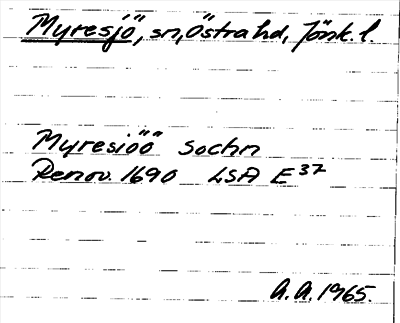 Myresjö, sn, Östra hd, Jönk. l.
Myresiöö sochn
Renov. 1690 LSA E³⁷
A.A. 1965.